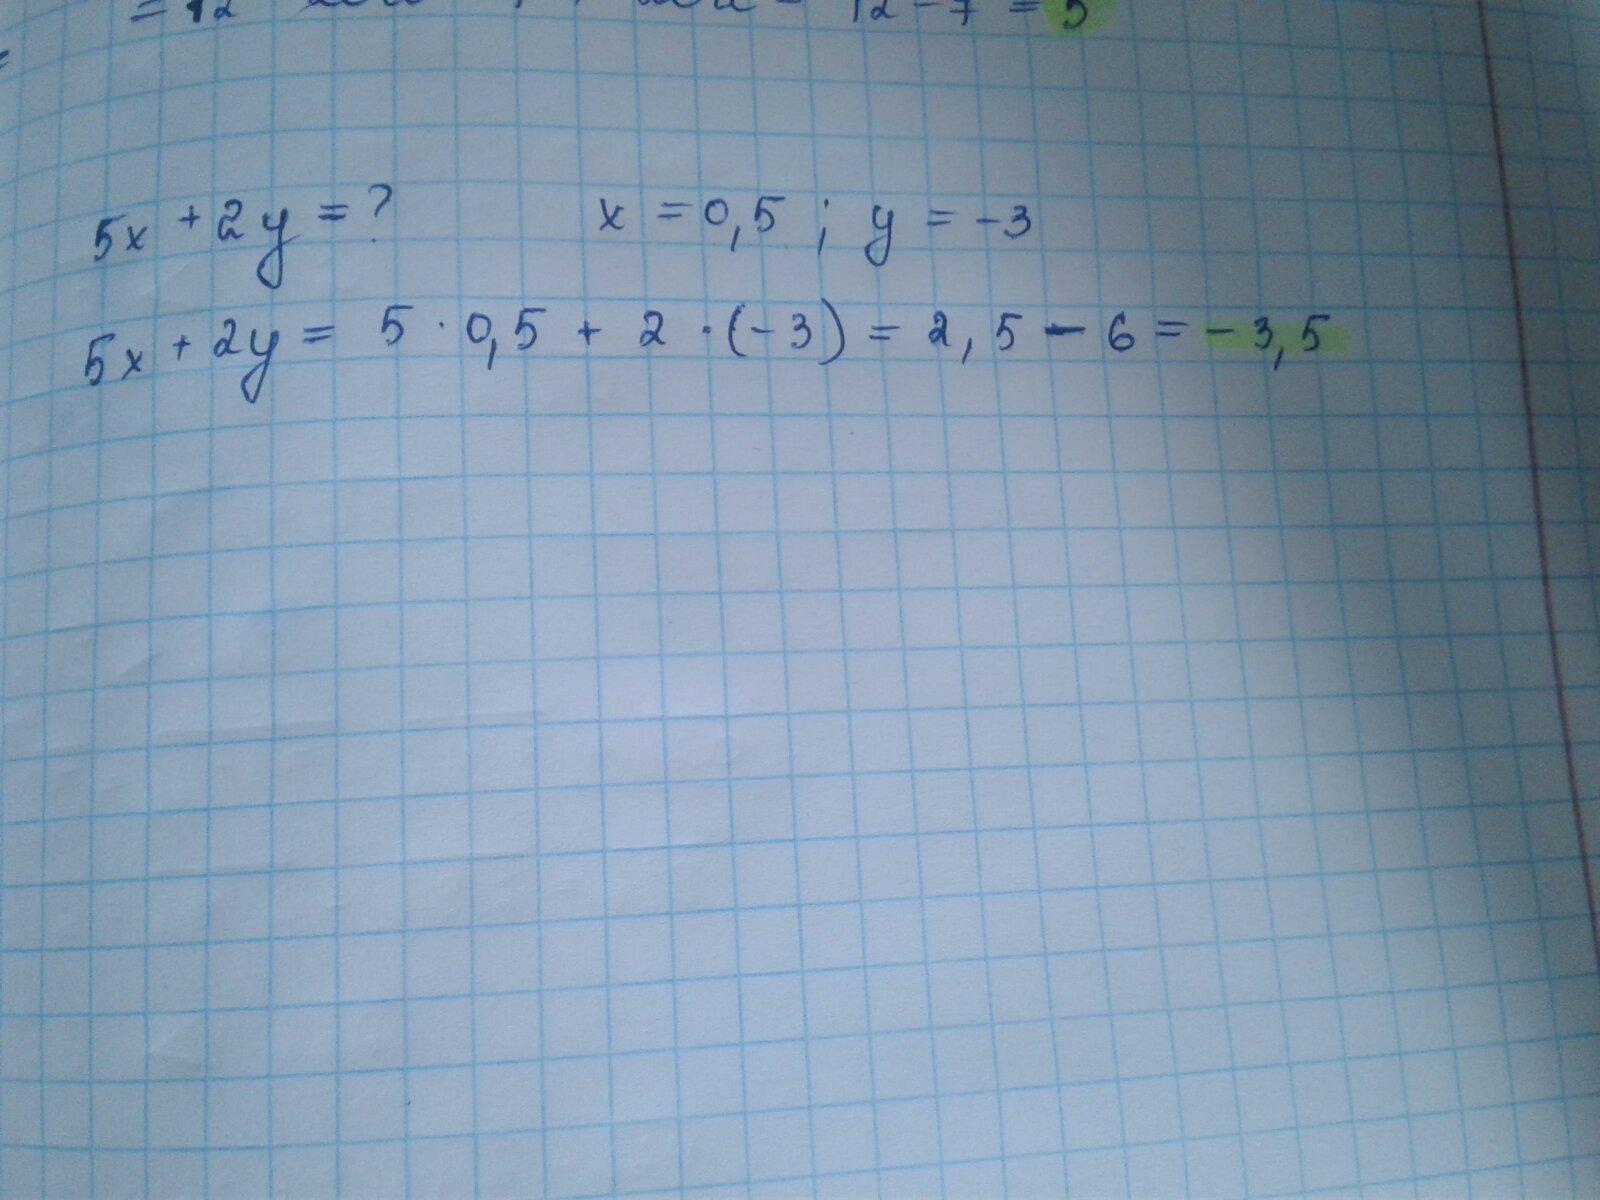 12 - 7 = 5
5x + 2y = ? x = 0,5 ; y = -3
5x + 2y = 5 · 0,5 + 2 · (-3) = 2,5 - 6 = -3,5